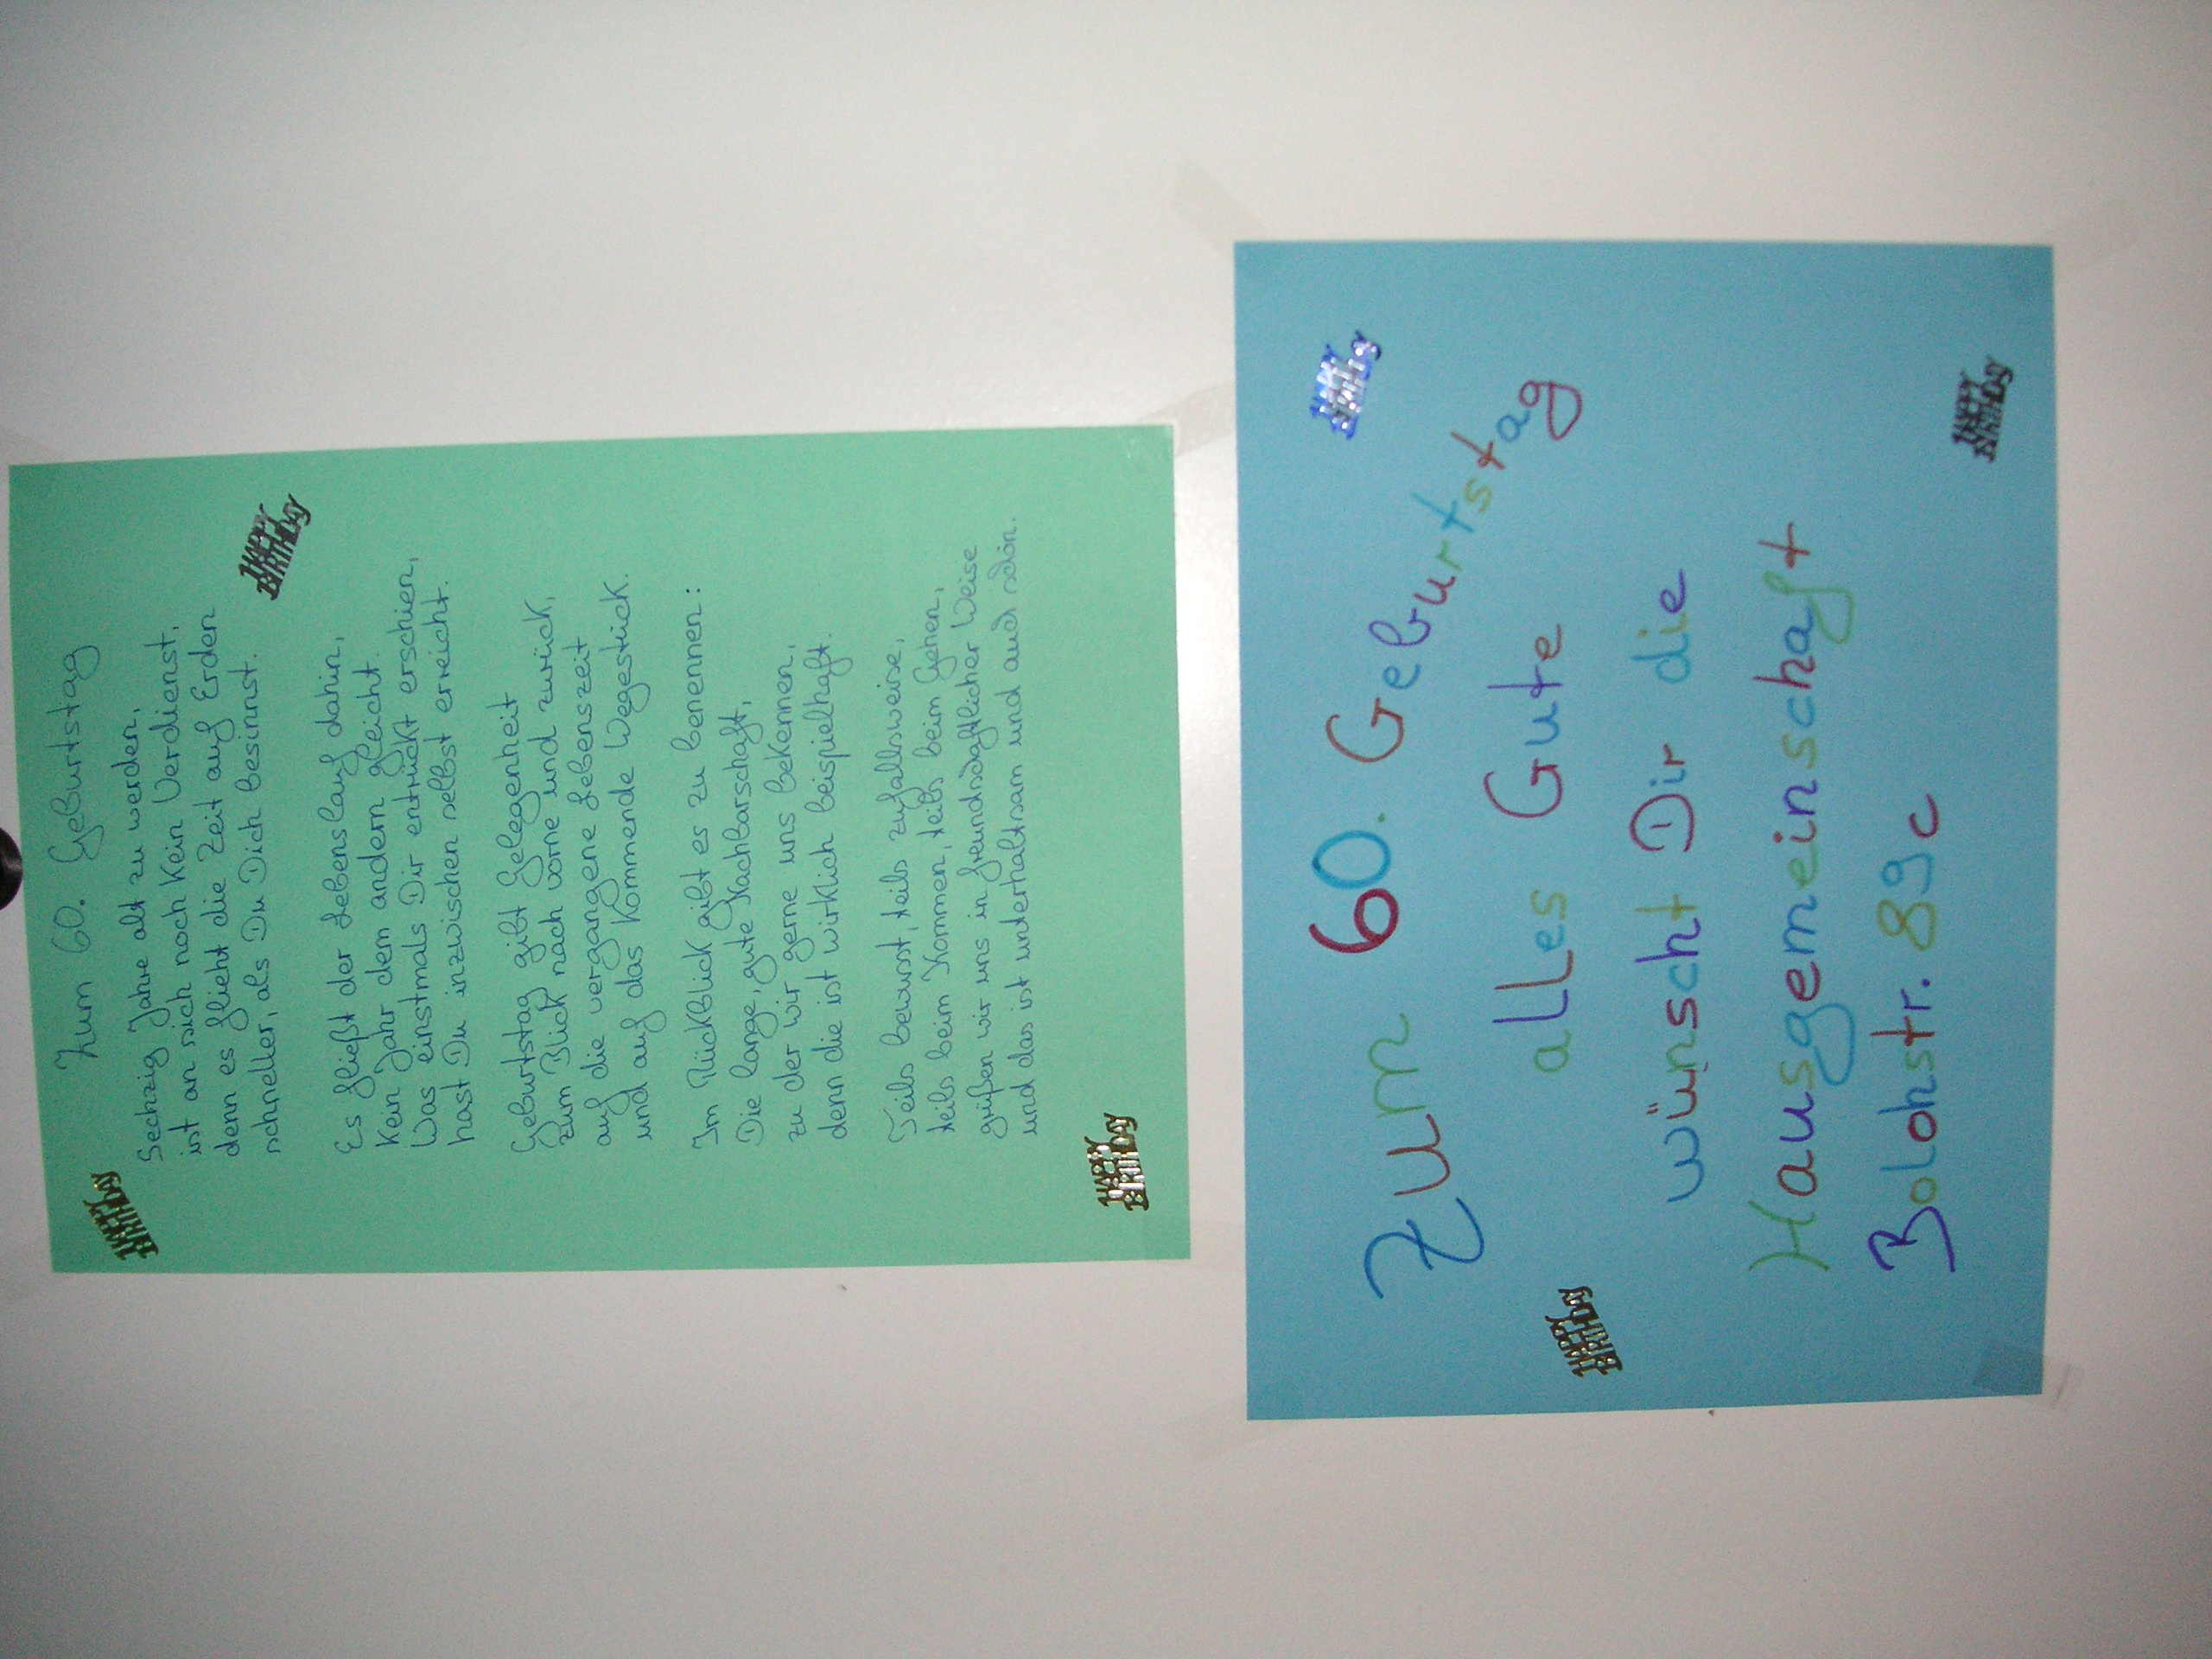 Zum 60. Geburtstag
Sechzig Jahre alt zu werden,
ist an sich noch kein Verdienst,
denn es flieht die Zeit auf Erden
schneller, als Du Dich besinnst.
Es fließt der Lebenslauf dahin,
kein Jahr dem andern gleicht.
Was einstmals Dir entrückt erschien,
hast Du inzwischen selbst erreicht.
Geburtstag gibt Gelegenheit
zum Blick nach vorne und zurück,
auf die vergangene Lebenszeit
und auf das kommende Wegestück.
Im Rückblick gibt es zu benennen:
Die lange, gute Nachbarschaft,
zu der wir gerne uns bekennen,
denn die ist wirklich beispielhaft.
Teils bewusst, teils zufallsweise,
teils beim Kommen, teils beim Gehen,
grüßen wir uns in freundschaftlicher Weise
und das ist unterhaltsam und auch schön.
HAPPY
BIRTHDAY
HAPPY
BIRTHDAY
HAPPY
BIRTHDAY
Zum 60. Geburtstag
alles Gute
wünscht Dir die
Hausgemeinschaft
Bolohstr. 89c
HAPPY
BIRTHDAY
HAPPY
BIRTHDAY
HAPPY
BIRTHDAY